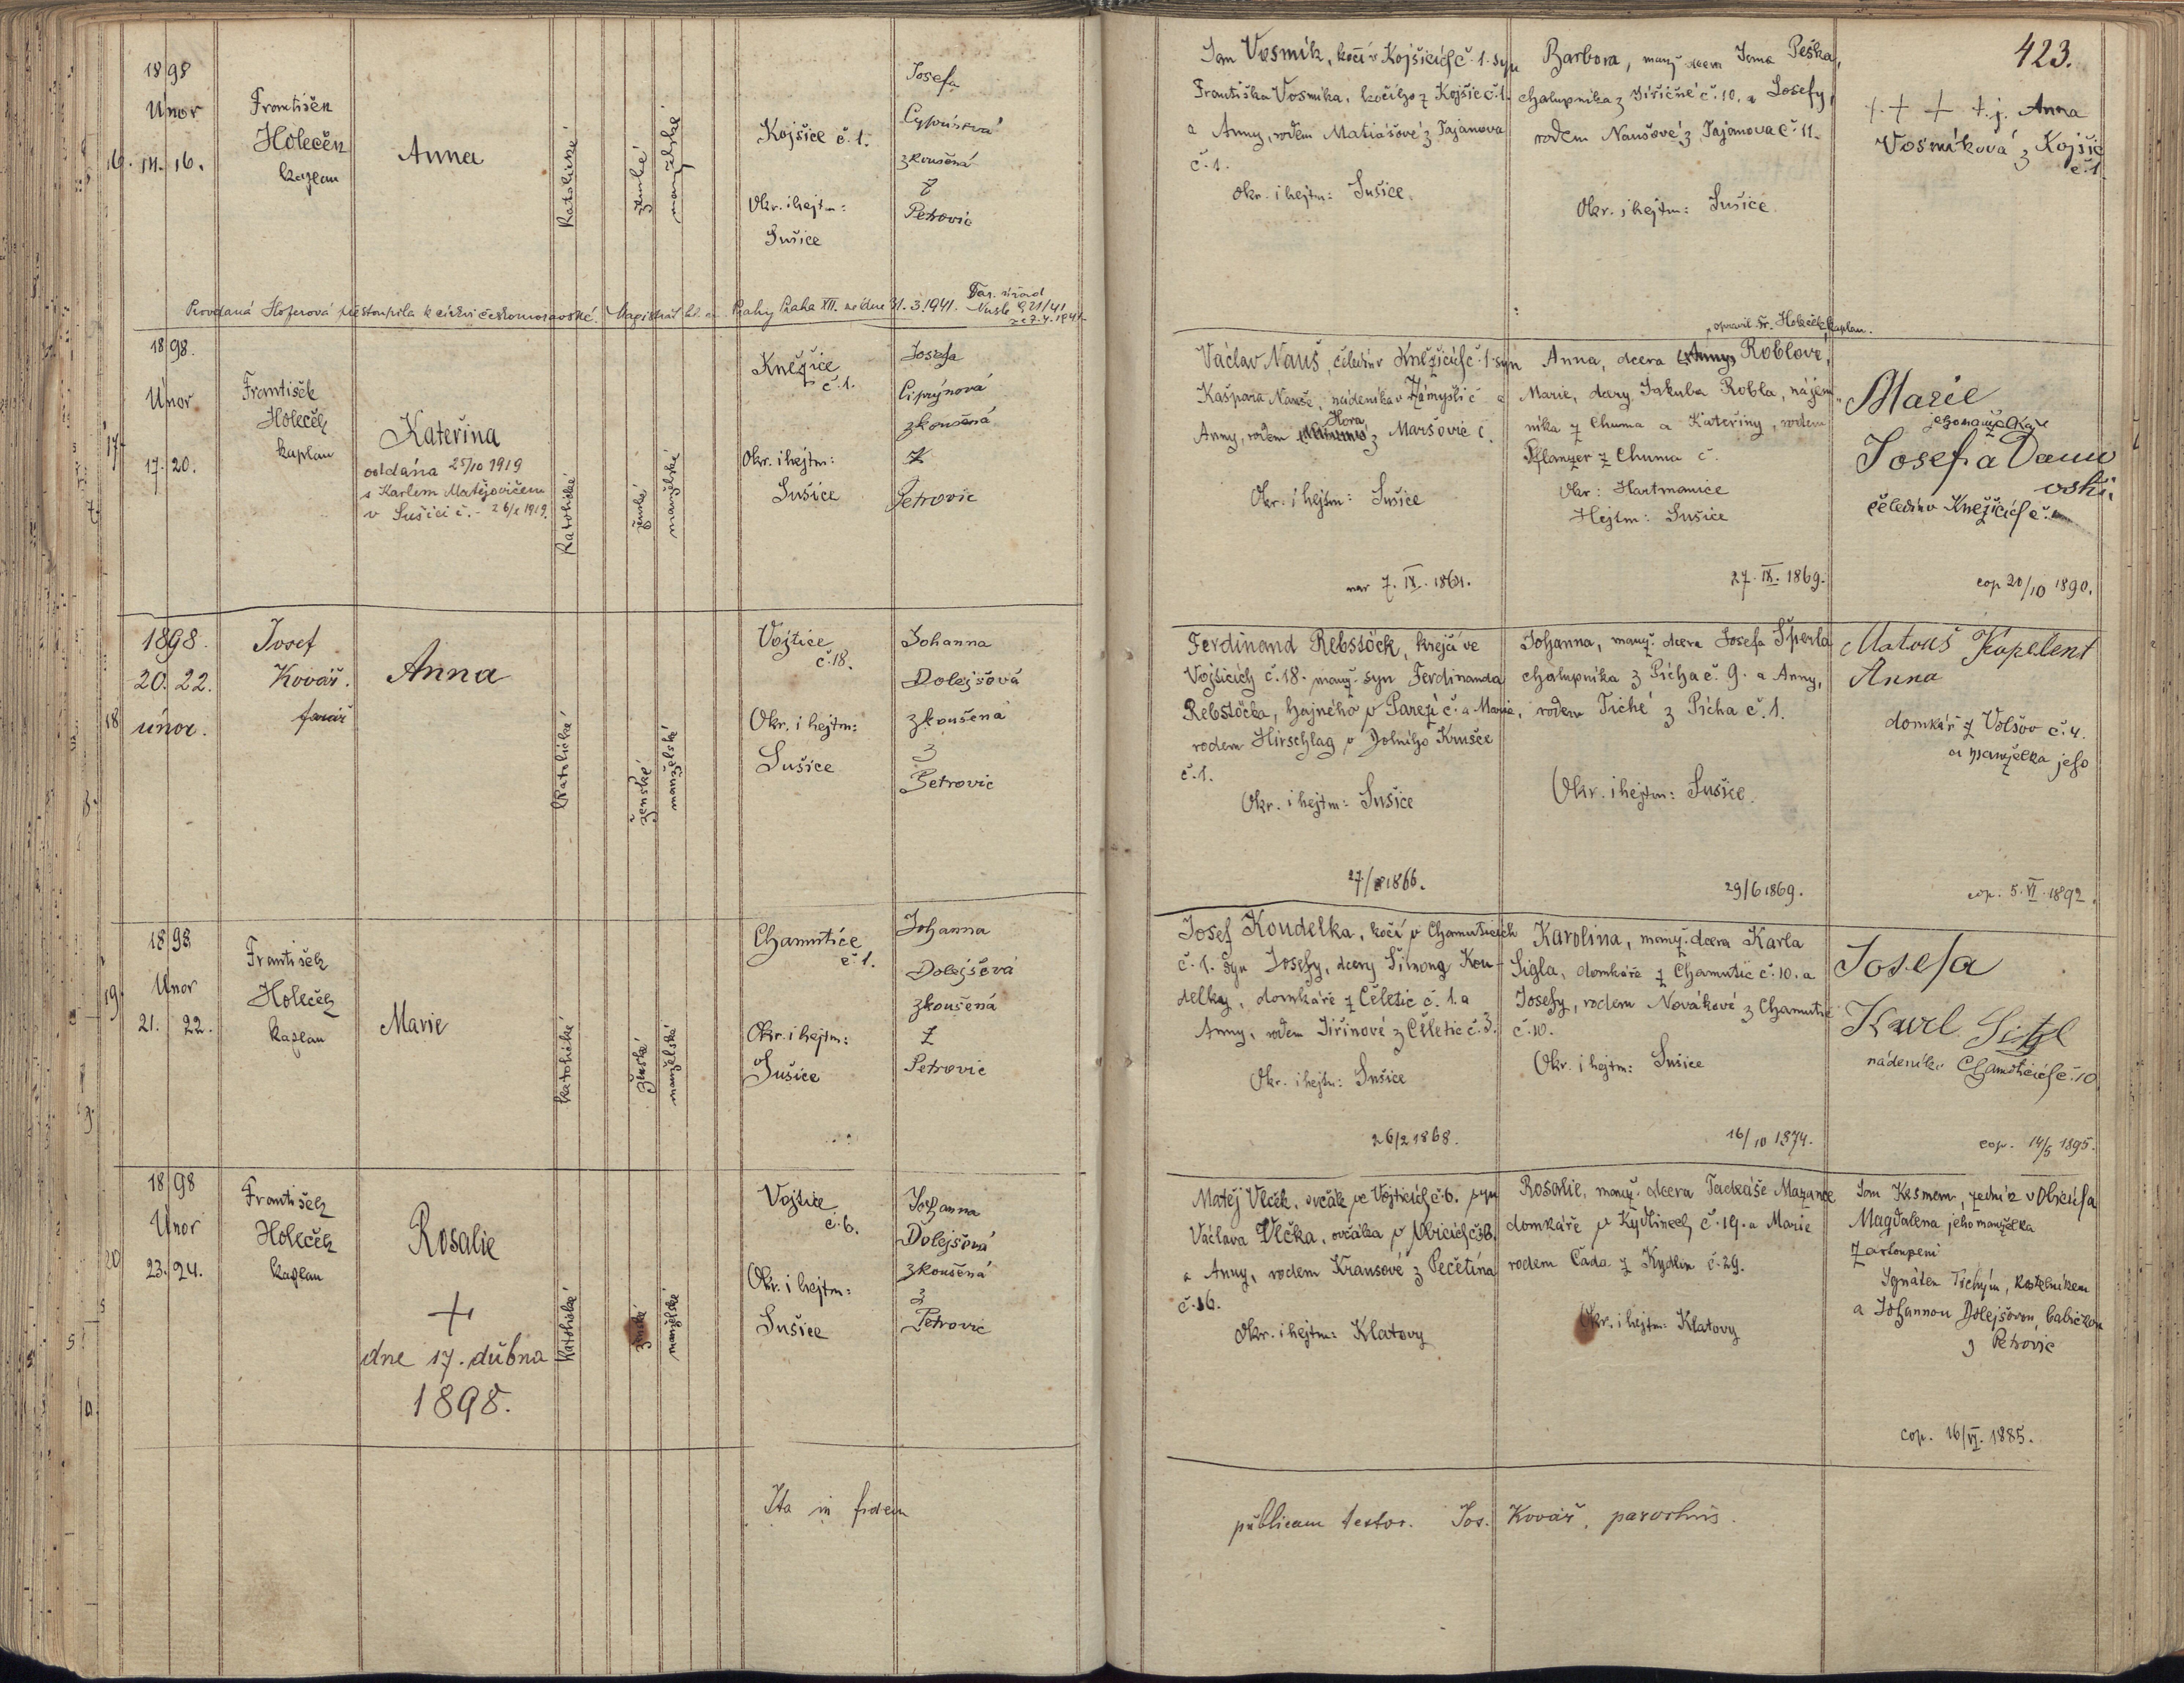 423.
1898
Únor
16. 14. 16.
František
Holeček
kaplan
Anna
katolické
ženské
manželské
Kojšice č. 1.
Okr. i hejtm:
Sušice
Josefa
Cyprinová
zkoušená
z
Petrovic
Jan Vosmík, kočí v Kojšicích č. 1. syn
Františka Vosmíka, kočího z Kojšic č. 1.
a Anny, rodem Matiášové z Tajanova
č. 1.
Okr. i hejtm: Sušice.
Barbora, manž. dcera Jana Peška,
chalupníka z Jiřičné č. 10. a Josefy,
rodem Naušové z Tajanova č. 11.
Okr. i hejtm: Sušice.
+ + + t. j. Anna
Vosmíková z Kojšic
č. 1.
Provdaná Hoferová přestoupila k církvi českomoravské. Magistrát hl. m. Prahy Praha XII. ze dne 31. 3. 1941. Far. úřad
Nusle
1898.
Únor
17 17. 20.
František
Holeček
kaplan
Kateřina
oddána 25/10 1919
s Karlem Matějovičem
v Sušici č. - 26/X 1919.
katolické
ženské
manželské
Kněžice
č. 1.
Okr. i hejtm:
Sušice
Josefa
Ciprýnová
zkoušená
z
Petrovic
Václav Nauš, čeledín v Kněžicích č. 1 syn
Kašpara Nauše, nádeníka v Zámyšli č. a
Anny, rodem Hora, z Maršovic č.
Okr. i hejtm: Sušice
nar 7. IX. 1861.
opravil Fr. Holeček kaplan.
Anna, dcera Roblové,
Marie, dcery Jakuba Robla, nájem-
níka z Chuma a Kateřiny, rodem
Pflanzer z Chuma č.
Okr: Hartmanice
Hejtm: Sušice
27. IX. 1869.
Marie
jeho manželka
Josefa
čeledín v Kněžicích č.
cop 20/10 1890.
1898.
20. 22.
18 únor.
Josef
Kovář.
farář
Anna
katolické
ženské
manželské
Vojtice
č. 18.
Okr. i hejtm:
Sušice
Johanna
Dolejšová
zkoušená
z
Petrovic
Ferdinand Rebstöck, krejčí ve
Vojticích č. 18. manž. syn Ferdinanda
Rebstöcka, hajného v Parezí č. a Marie,
rodem Hirschlag v Dolního Krušce
č. 1.
Okr. i hejtm: Sušice
27/8 1866.
Johanna, manž. dcera Josefa Šperla
chalupníka z Pícha č. 9. a Anny,
rodem Tiché z Pícha č. 1.
Okr. i hejtm: Sušice.
29/6 1869.
Matouš Kapelent
Anna
domkář z Volšov č. 4.
a manželka jeho
cop. 5. VI. 1892.
1898
Únor
19 21. 22.
František
Holeček
kaplan
Marie
katolické
ženské
manželské
Chamutice
č. 1.
Okr. i hejtm:
Sušice
Johanna
Dolejšová
zkoušená
z
Petrovic
Josef Koudelka, kočí v Chamuticích
č. 1. syn Josefy, dcery Šimona Kou-
delky, domkáře z Čeletic č. 1. a
Anny, rodem Jiřinové z Čeletic č. 3.
Okr. i hejtm: Sušice
26/2 1868.
Karolina, manž. dcera Karla
Sigla, domkáře z Chamutic č. 10. a
Josefy, rodem Novákové z Chamutic
č. 10.
Okr. i hejtm: Sušice
16/10 1874.
Josefa
Karl Sigl
nádeník v Chamuticích č. 10
cop. 14/5 1895.
1898
Únor
20 23. 24.
František
Holeček
kaplan
Rosalie
+
dne 17. dubna
1898.
katolické
ženské
manželské
Vojtice
č. 6.
Okr. i hejtm:
Sušice
Johanna
Dolejšová
zkoušená
z
Petrovic
Matěj Vlček, ovčák ve Vojticích č. 6. syn
Václava Vlčka, ovčáka v Obicích č. 36.
a Anny, rodem Krausové z Pečetína
č. 16.
Okr. i hejtm: Klatovy
Rosalie, manž. dcera Tadeáše Mazance
domkáře v Kydlinech č. 19. a Marie
rodem Čada z Kydlin č. 29.
Okr. i hejtm: Klatovy
Jan, zedník v Obicích a
Magdalena jeho manželka
zastoupeni
Ignátem Tichým, kostelníkem
a Johannou Dolejšovou, babičkou
z Petrovic
cop. 16/VI. 1885.
Ita in fidem
publicam testor. Jos. Kovář, parochus.